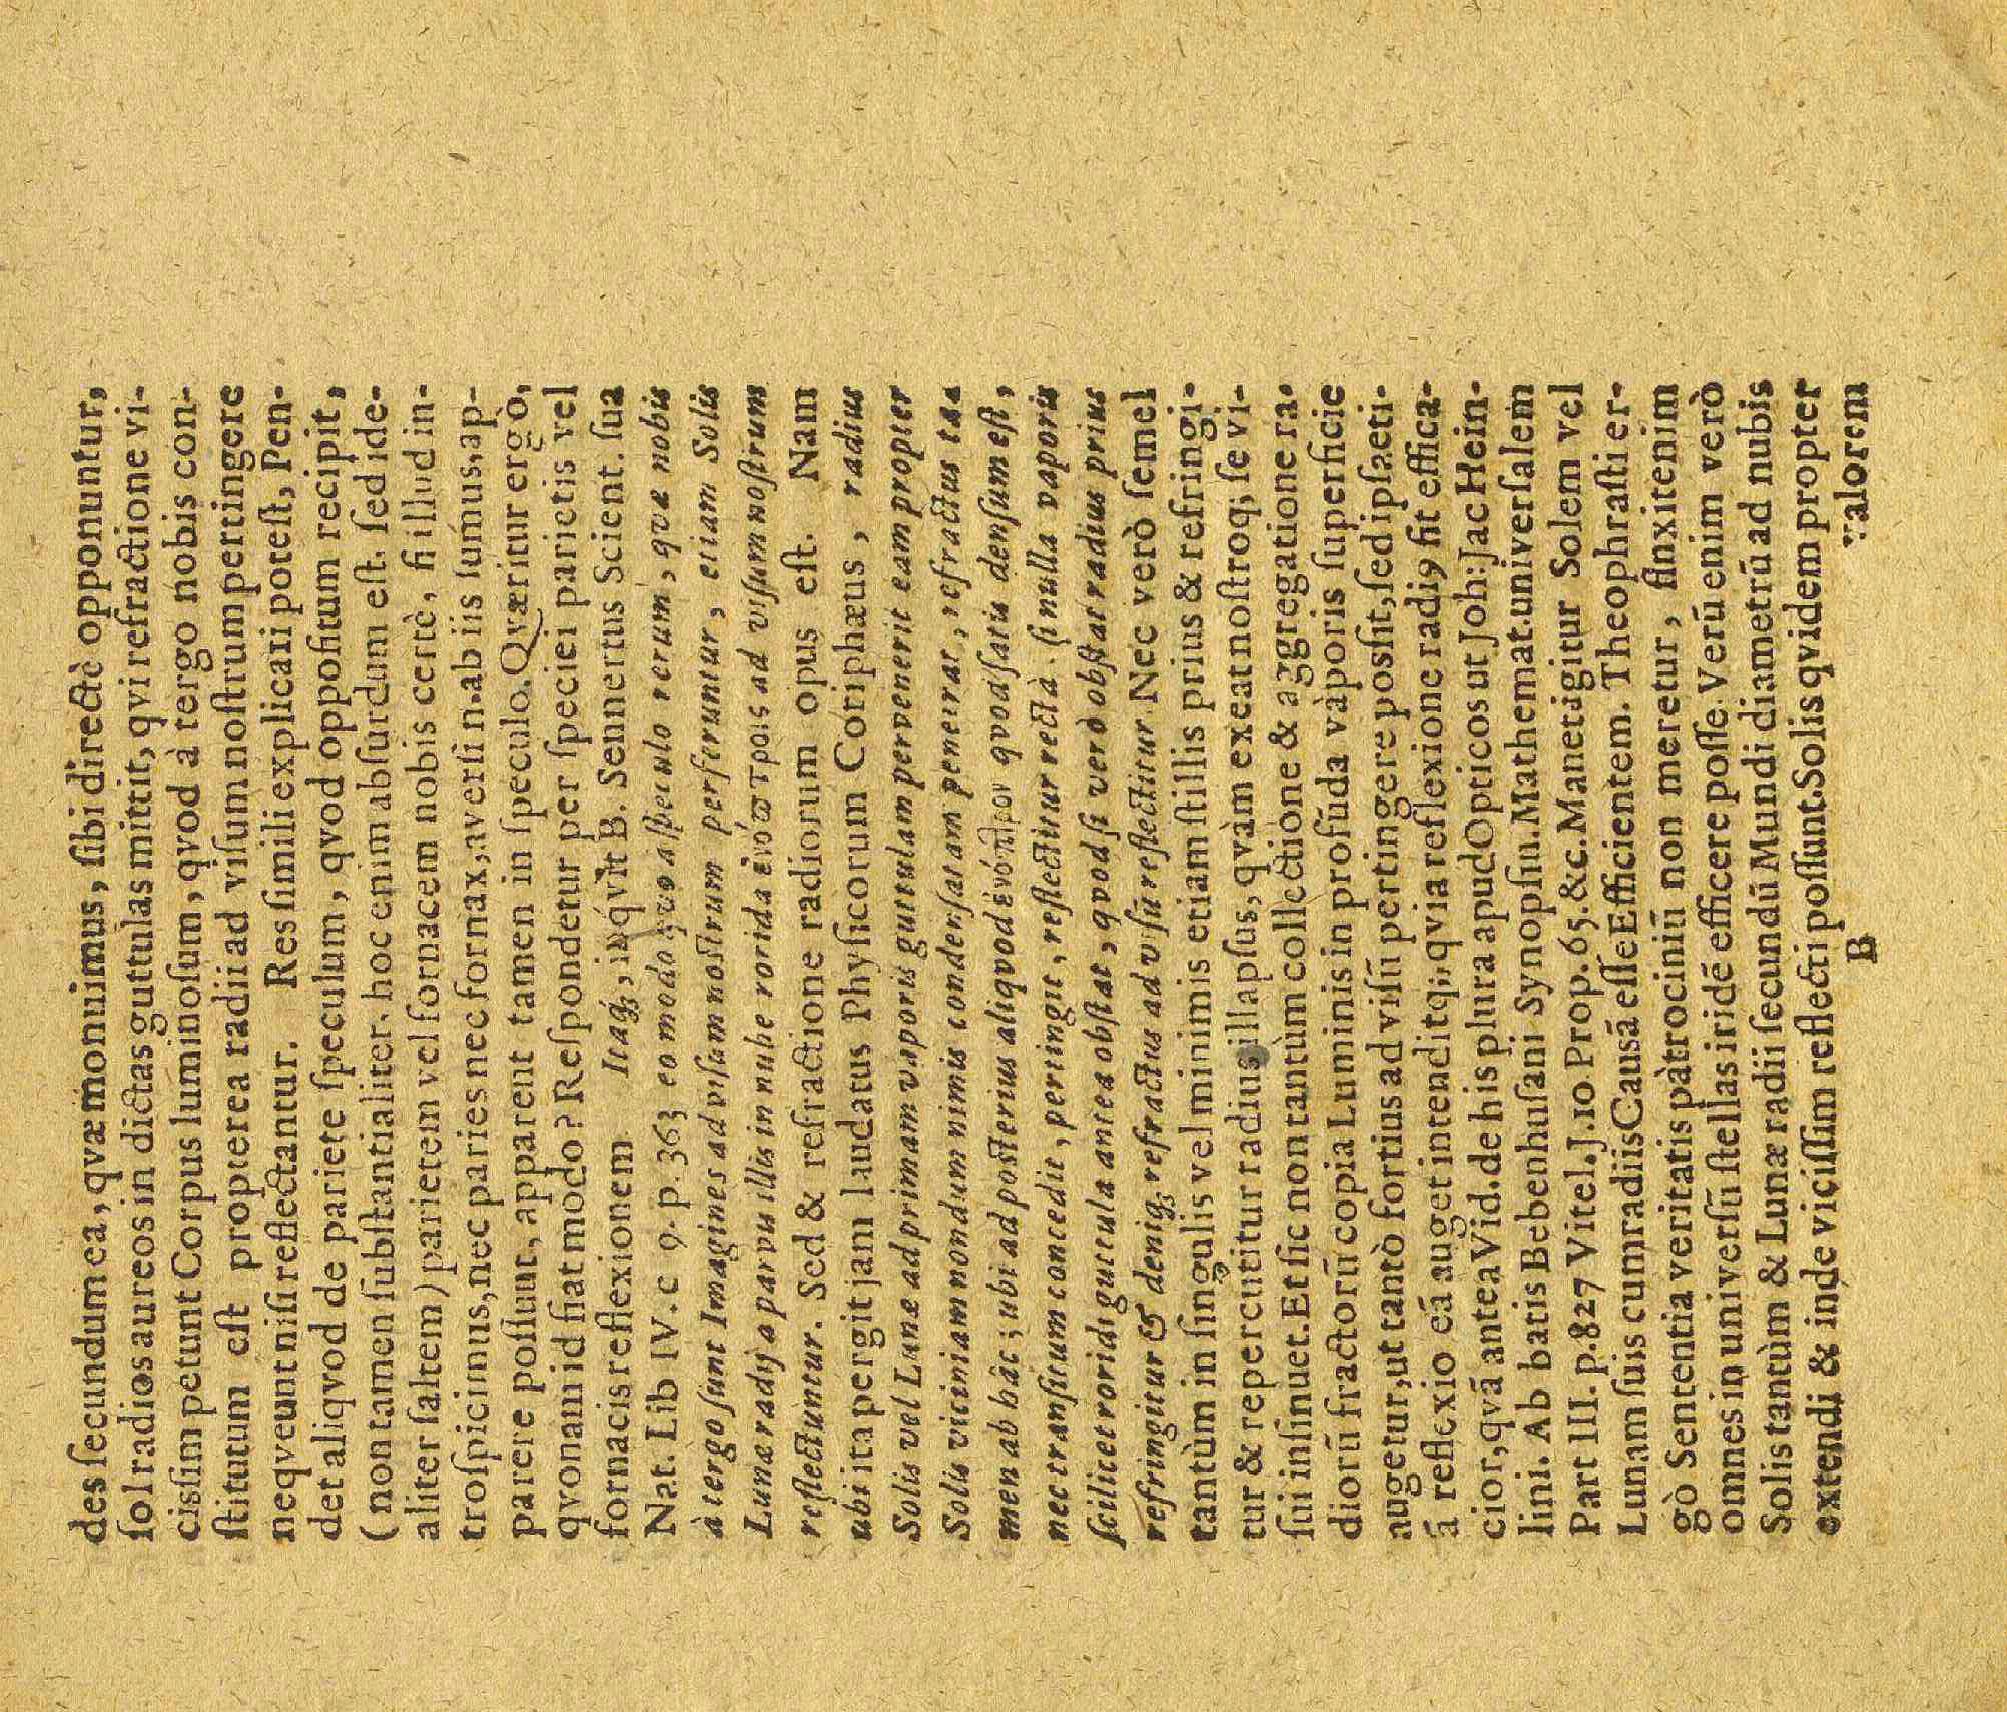 des ſecundum ea, qvæ monuimus, ſibi directè opponuntur,
ſol radios aureos in dictas guttulas mittit, qvi refractione vi-
cisſim petunt Corpus luminoſum, qvod à tergo nobis con-
ſtitutum eſt propterea radii ad viſum noſtrum pertingere
neqveunt niſi reflectantur. Res ſimili explicari poteſt, Pen-
det aliqvod de pariete ſpeculum, qvod oppoſitum recipit,
(non tamen ſubſtantialiter, hoc enim abſurdum eſt. ſed ide-
aliter ſaltem) parietem vel fornacem nobis certè, ſi illud in-
troſpicimus, nec paries nec fornax, averſi n. ab iis ſumus, ap-
parere poſſunt, apparent tamen in ſpeculo. Qværitur ergo,
qvonam id fiat modo? Reſpondetur per ſpeciei parietis vel
fornacis reflexionem Itaqꝫ, inqvit B. Sennertus Scient. ſua
Nat. Lib IV. c 9. p. 363 eo modo qvo aſpeculo rerum, qvæ nobis
à tergo ſunt Imagines ad viſum noſtrum perferuntur, etiam Solis
Lunæ radij a parvis illis in nube rorida ἐνόπτροις ad viſum noſtrum
reflectuntur. Sed & refractione radiorum opus eſt. Nam
ubi ita pergit jam laudatus Phyſicorum Coriphæus, radius
Solis vel Lunæ ad primam vaporis guttulam pervenerit eam propter
Solis viciniam nondum nimis condenſatam penetrat, refractus ta-
men ab hâc; ubi ad poſterius aliqvod ἐνόπτρον qvod ſatis denſum eſt,
nec tranſitum concedit, pertingit, reflectitur rectà. ſi nulla vaporis
ſcilicet roridi guttula antea obſtat, qvod ſi verò obſtat radius prius
refringitur & deniqꝫ refractus ad viſũ reflectitur Nec verò ſemel
tantùm in ſingulis vel minimis etiam ſtillis prius & refringi-
tur & repercutitur radius illapſus, qvàm exeat noſtroq; ſe vi-
ſui inſinuet. Et ſic non tantùm collectione & aggregatione ra-
diorũ fractorũ copia Luminis in profũda vaporis ſuperficie
augetur, ut tantò fortius ad viſũ pertingere poſſit, ſed ipſa eti-
ã reflexio eã auget intenditq;, qvia reflexione radi9 fit effica-
cior, qvã antea Vid. de his plura apud Opticos ut Joh: Jac Hein-
lini. Ab batis Bebenhuſani Synopſin. Mathemat. univerſalem
Part III. p. 827 Vitel. J. 10 Prop. 65. &c. Manet igitur Solem vel
Lunam ſuis cum radiis Cauſã eſſe Efficientem. Theophraſti er-
gò Sententia veritatis patrociniũ non meretur, finxit enim
omnes in univerſũ ſtellas iridẽ efficere poſſe. Verũ enim verò
Solis tantùm & Lunæ radii ſecundũ Mundi diametrũ ad nubis
extendi & inde viciſſim reflecti poſſunt. Solis qvidem propter
B valorem